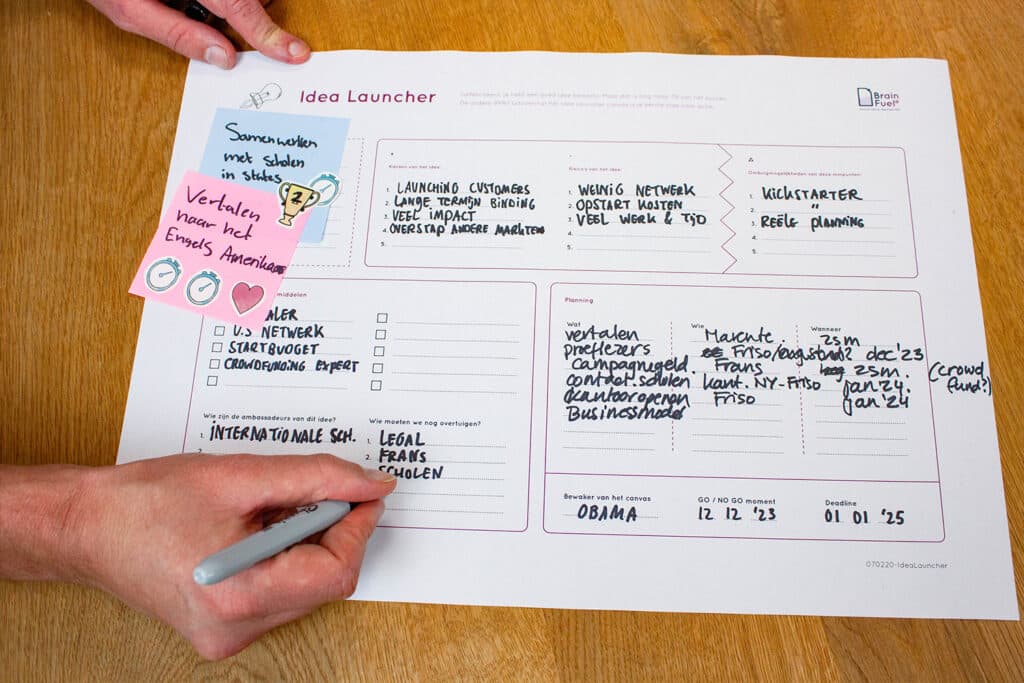 Idea Launcher
Brain
Fuel
Samenwerken
met scholen
in states
2
Vertalen
naar het
Engels Amerikaans
Kansen van het idee:
1. LAUNCHING CUSTOMERS
2. LANGE TERMIJN BINDING
3. VEEL IMPACT
4. OVERSTAP ANDERE MARKTEN
5.
Risico's van het idee:
1. WEINIG NETWERK
2. OPSTART KOSTEN
3. VEEL WERK & TIJD
4.
5.
Ombuigmogelijkheden van deze minpunten:
1. KICKSTARTER
2. "
3. REËLE PLANNING
4.
5.
middelen
ALER
U.S NETWERK
STARTBUDGET
CROWDFUNDING EXPERT
Wie zijn de ambassadeurs van dit idee?
1. INTERNATIONALE SCH.
2.
Wie moeten we nog overtuigen?
1. LEGAL
2. FRANS
SCHOLEN
Planning
Wat
vertalen
proeflezers
campagnegeld.
contact scholen
kantoor openen
Businessmodel
Wie
Marente.
Friso/
Frans
kant. NY-Friso
Friso
Wanneer
zsm
dec '23
zsm. (crowd
fund?)
jan '24.
jan '24
Bewaker van het canvas
OBAMA
GO / NO GO moment
12 12 '23
Deadline
01 01 '25
070220-IdeaLauncher